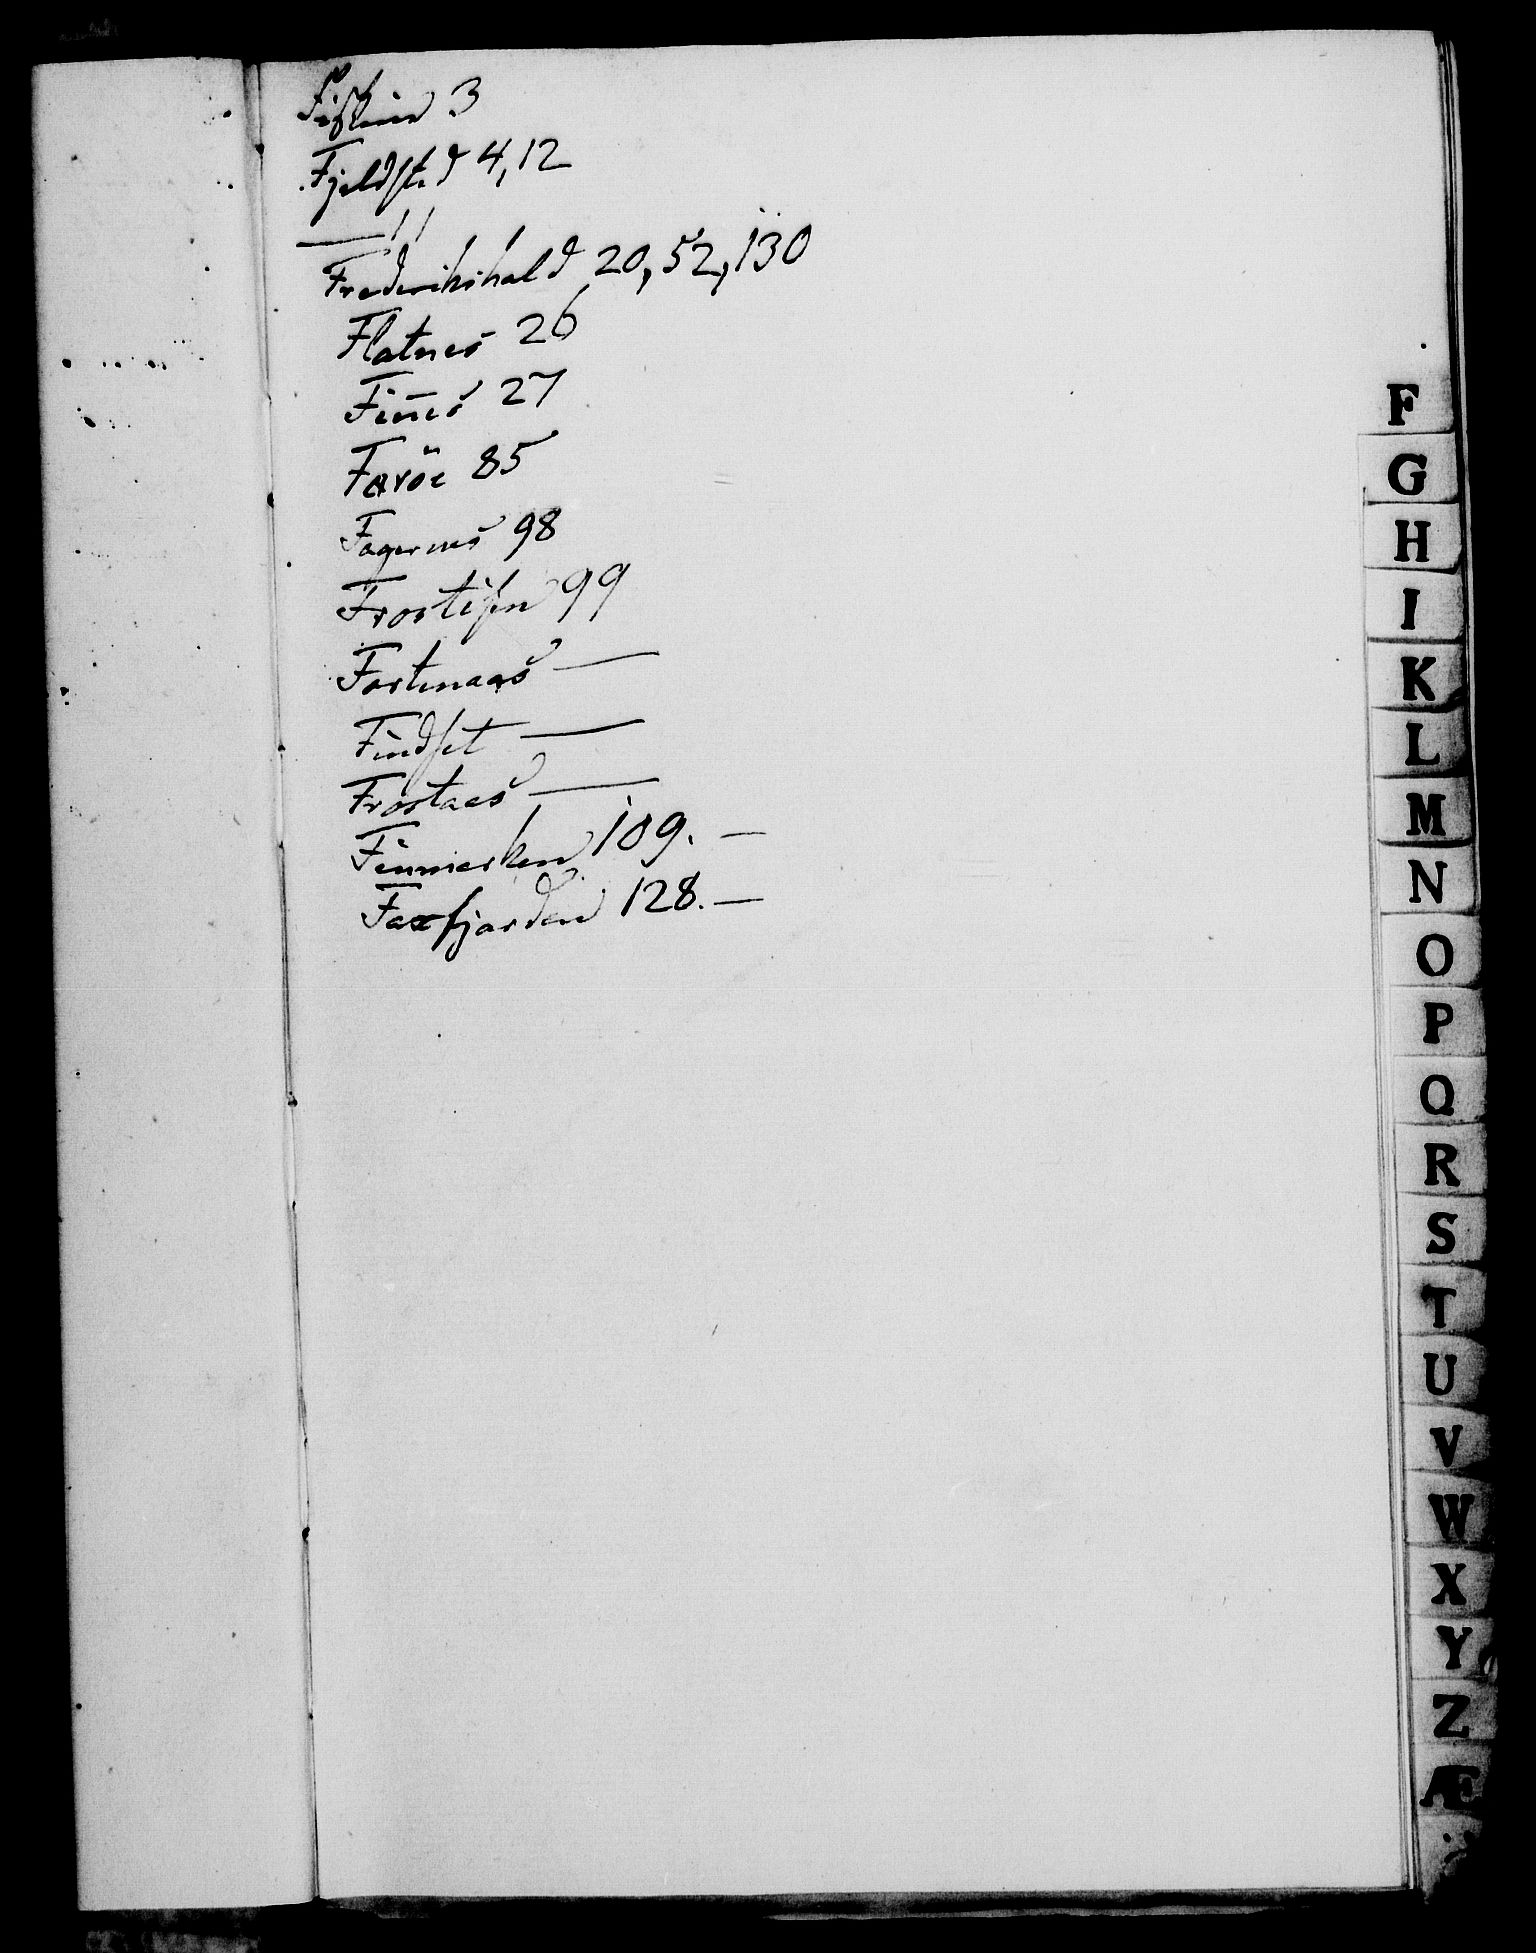 Fiskein 3
Fjeldsted 4, 12
— 11
Frederikshald 20, 52, 130
Flatnes 26
Fines 27
Færöe 85
Fagernes 98
Frostisen 99
Fostenaas —
Findset —
Frostaas —
Finmarken 109. —
Faxfjorden 128. —
F
G
H
I
K
L
M
N
O
P
Q
R
S
T
U
V
W
X
Y
Z
Æ